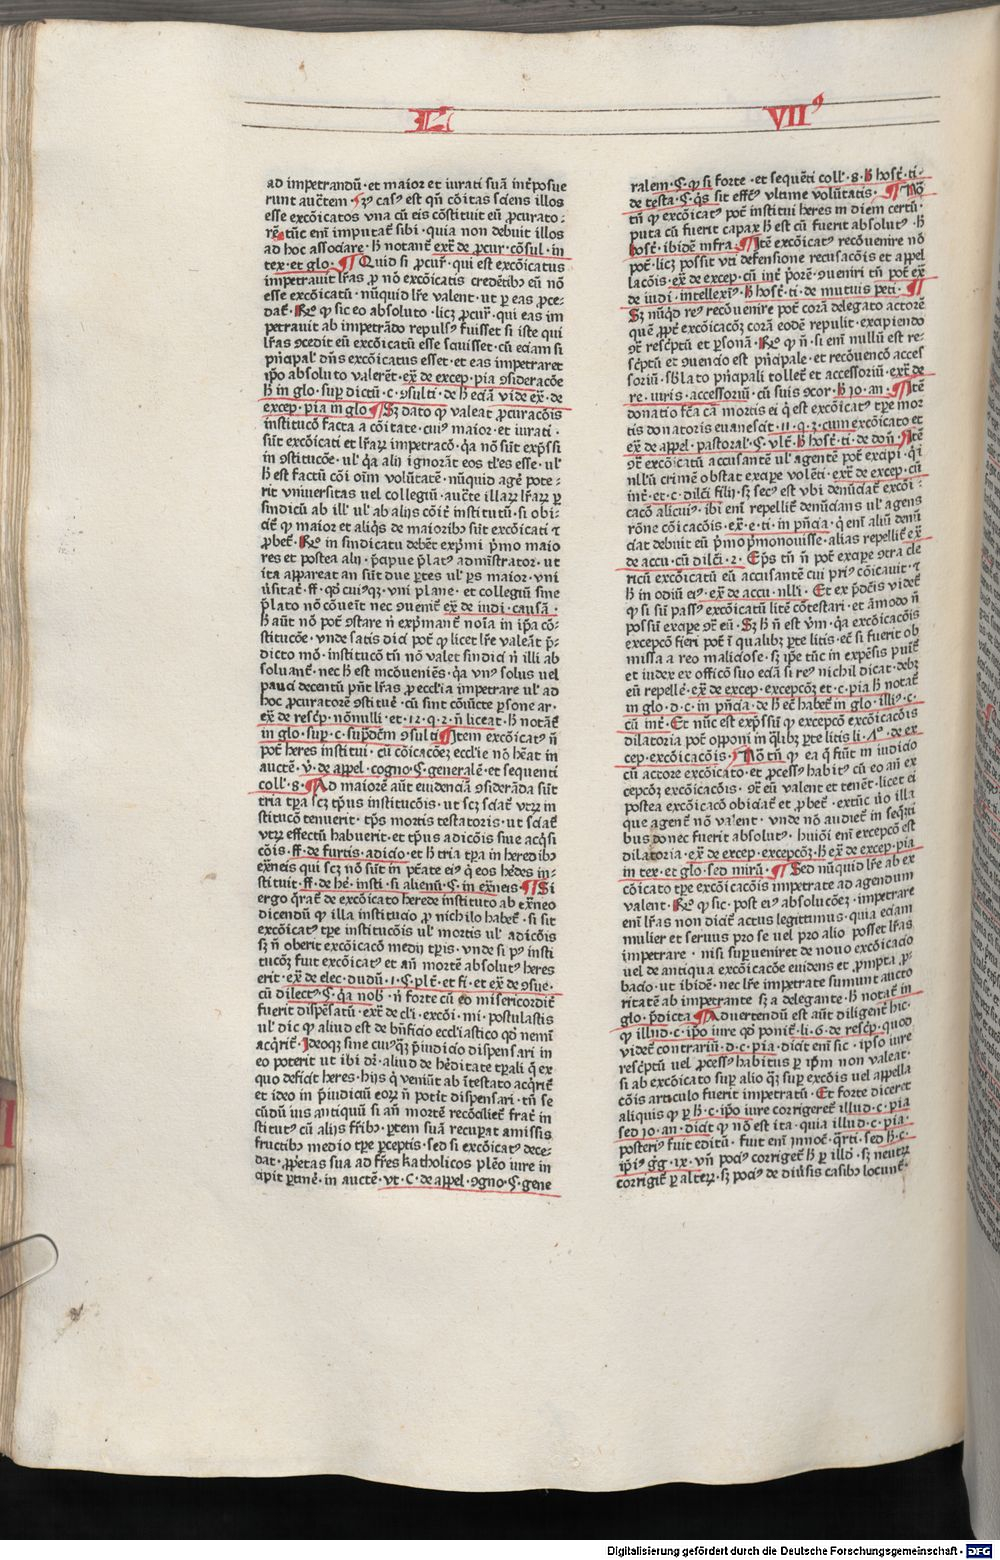 L VIIꝰ
ad impetrandū · et maior et iurati suā int̄posue
runt auc̄tem · 2ꝰ casꝰ est qn̄ cōitas sciens illos
esse excōicatos vna cū eis cōstituit eū ꝓcurato⸗
rē tūc eni imputat̄ sibi · quia non debuit illos
ad hoc associare · h̄ notant̄ ext̄ de ꝓcur · cōsul · in
tex · et glo · ¶ Quid si ꝓcur̄ · qui est excōicatus
impetrauit lr̄as · ꝓ nō excōicatis credētibꝫ eū nō
esse excōicatū · nūquid lr̄e valent · ut ꝑ eas ꝓce⸗
dat̄ · Rꝰ ꝙ sic eo absoluto · licꝫ ꝓcur̄ · qui eas im
petrauit ab impetrādo repulsꝰ fuisset si iste qui
lr̄as ꝯcedit eū excōicatū esse sciuisset · cū eciam si
pn̄cipal' dn̄s excōicatus esset · et eas impetraret
ip̄o absoluto valerēt · ex̄ de excep · pia ꝯsideracōe
h̄ in glo · suꝑ dictū · c · ꝯsulti · de h̄ eciā vide ex̄ · de
excep · pia in glo ¶ Sꝫ dato ꝙ valeat ꝓcuracōis
institucō facta a cōitate · cuiꝰ maior · et iurati ·
sūt excōicati et lr̄aꝝ impetracō · q̄a nō sūt exp̄ssi
in ꝯstitucōe · ul' q̄a alij ignorāt eos tl'es esse · ul'
h̄ est factū cōi oīm volūtate · nūquid age' pote⸗
rit vniuersitas uel collegiū · auc̄te illaꝝ lr̄aꝝ ꝑ
sindicū ab ill' ul' ab alijs cōit' institutū · si obi⸗
cit̄ ꝙ maior et aliq̄s de maioribꝫ sūt excōicati ⁊
ꝓbet̄ · Rꝰ in sindicatu debēt exp̄mi p̄mo maio
res et postea alij · p̄cipue p̄latꝰ adm̄istrator · ut
ita appareat an sūt due ꝑtes ul' ꝑs maior · vni
ūsitat̄ · ff · qd̓ cuiꝰqꝫ · vni plane · et collegiū sine
p̄lato nō cōueīt nec ꝯuenit̄ ex̄ de iudi · causā ·
h̄ aūt nō pot̄ ꝯstare n̄ exp̄mant̄ noīa in ip̄a cō⸗
stitucōe · vnde satis dici pot̄ ꝙ licet lr̄e valeāt p̄⸗
dicto mō · institucō tn̄ nō valet sindici n̄ illi ab
soluant̄ · nec h̄ est incōueniēs · q̄a vnꝰ solus uel
pauci decentū pn̄t lr̄as ꝓ eccl'ia impetrare ul' ad
hoc ꝓcuratorē ꝯstitue' · cū sint cōiūcte ꝑsone ar ·
ex̄ de resc̄p · nōnulli · et · 12 · q · 2 · n̄ liceat · h̄ notat̄
in glo · suꝑ · c · sup̄dem̄ ꝯsulti ¶ Item excōicatꝰ n̄
pot̄ heres institui · cū cōicacōeꝫ eccl'ie nō heāt in
auctē · v̄ · de appel · cogno · § · generalē · et sequenti
coll' · 8 · ¶ Ad maiorē aūt euidenciā ꝯsiderāda sūt
tria tꝑa scꝫ tp̄us institucōis · ut scꝫ sciat̄ vtꝝ in
stitucō tenuerit · tp̄s mortis testatoris · ut sciat̄
vtꝝ effectū habuerit · et tp̄us adicōis siue acq̄si
cōis · ff · de furtis · adicio · et h̄ tria tꝑa in heredibꝫ
ex̄neis qui scꝫ nō sūt in pt̄ate eiꝰ q̄ eos he'des in⸗
stituit · ff · de he' · insti · si alienū · § · in ex̄neis ¶ Si
ergo q̄rat̄ de excōicato herede instituto ab ex̄neo
dicendū ꝙ illa institucio ꝓ nichilo habet̄ · si sit
excōicatꝰ tꝑe institucōis ul' mortis ul' adicōis
sꝫ n̄ oberit excōicacō medij tꝑis · vnde si pꝰ insti
tucōꝫ fuit excōicatꝰ et an̄ mortē absolutꝰ heres
erit · ex̄ de elec · dudū · 1 · § · plet̄ · et fi · et ex̄ de ꝯsue ·
cū dilectꝰ · § · q̄a nob̓ · n̄ forte cū eo misericordit̄
fuerit dispēsatū · ext̄ de cl'i · excōi · mi · postulastis
ul' dic ꝙ aliud est de bn̄ficio eccl'iastico qd̓ nemī
acq̄rit̄ · Ideoqꝫ sine cuiꝰqꝫ p̄iudicio dispensari in
eo poterit ut ibi dr̄ · aliud de he'ditate tꝑali q̄ ex
quo deficit heres · hijs q̄ veniūt ab ītestato acq̄rit̄
et ideo in p̄iudiciū eoꝝ n̄ potit dispensari · tn̄ se
cūdū ius antiquū si an̄ mortē recōciliet̄ frat̄ in
stitutꝰ cū alijs fr̄ibꝫ · ꝑtem suā recuꝑat amissis
fructibꝫ medio tꝑe ꝑceptis · sed si excōicatꝰ dece⸗
dat · ꝓp̄etas sua ad fr̄es katholicos pl'eō iure in
cipit ꝑtine' · in auctē · vt · C · de appel · ꝯgno · § · gene
ralem · § · ꝙ si forte · et sequēti coll' · 8 · h̄ host̄ · ti ·
de testa · § · q̄s sit effc̄tꝰ vltime volūtatis · ¶ Nō
tn̄ ꝙ excōicatꝰ pot̄ institui heres in diem certū ·
puta cū fuerit capax h̄ est cū fuerit absolutꝰ · h̄
host̄ · ibidē infra · ¶ Itē excōicatꝰ recōuenire nō
pot̄ · licꝫ possit vti defensione recusacōis et appel
lacōis · ex̄ de excep · cū int̄ p̄orē · ꝯueniri tn̄ pot̄ ex̄
de iudi · intellexiꝰ · h̄ host̄ · ti · de mutuis peti · ¶
Sꝫ nūqd̓ reꝰ recōuenire pot̄ corā delegato actorē
quē ꝓpt̄ excōicacōꝫ corā eodē repulit · excipiendo
ꝯt̄ resc̄ptū et ꝑsonā · Rꝰ ꝙ n̄ · si eni nullū est re⸗
sc̄ptū et ꝯuencio est pn̄cipale · et recōuencō acces
soriū · sb̓lato pn̄cipali tollet̄ et accessoriū · ext̄ de
re · iuris · accessoriū · cū suis ꝯcor · h̄ Jo · an · ¶ Itē
donatio fc̄a cā mortis ei q̄ est excōicatꝰ tꝑe mor
tis donatoris euanescit · 11 · q · 3 · cum excōicato et
ex̄ de appel · pastoral' · § · vlt̄ · h̄ host̄ · ti · de don̄ · Itē
ꝯt̄ excōicatū accusantē ul' agentē pot̄ excipi · q̄i
nll'ū crimē obstat excipe volēti · ext̄ de excep · cū
int̄ · et · c · dilc̄i filij · sꝫ secꝰ est vbi denūciat̄ excōi⸗
cacō alicuiꝰ · ibi eni repellit̄ denūcians ul' agens
rōne cōicacōis · ex̄ · e · ti · in pn̄cia · q̄ eni aliū denū
ciat debuit eū p̄mo p̄monouisse · alias repellit̄ ex̄
de accu · cū dilc̄i · 2 · Ep̄s tn̄ n̄ pot̄ excipe ꝯtra cle
ricū excōicatū eū accusantē cui priꝰ cōicauit · ⁊
h̄ in odiū eiꝰ · ex̄ de accu · nlli · Et ex p̄dc̄is videt̄
ꝙ si sū passꝰ excōicatū litē cōtestari · et āmodo n̄
possū excipe ꝯt̄ eū · Sꝫ h̄ n̄ est v̄m · q̄a excōicacōis
excepcō fieri pot̄ ī qualibꝫ ꝑte litis · ec̄ si fuerit ob
missa a reo maliciose · sꝫ ip̄e tūc in expēsis puīt̄
et iudex ex officō suo eciā si reꝰ nichil dicat · debꝫ
eū repelle' · ex̄ de excep · excepcōꝫ et · c · pia h̄ notat̄
in glo · d · c · in pn̄cia · de h̄ ec̄ habet̄ in glo · illiꝰ · c ·
cū int̄ · Et nūc est exp̄ssū ꝙ excepcō excōicacōis
dilatoria pot̄ opponi in q̄libꝫ ꝑte litis li · 6ꝰ · de ex
cep · excōicacōis · ¶ Nō tn̄ ꝙ ea q̄ fiūt in iudicio
cū actore excōicato · et ꝓcessꝰ habitꝰ cū eo an̄ ex
cepcōꝫ excōicacōis · ꝯt̄ eū valent et tenēt · licet ei
postea excōicacō obiciat̄ et ꝓbet̄ · extūc ūo illa
que agent̄ nō valent · vnde nō audiet̄ in seq̄nti
bus donec fuerit absolutꝰ · huiōi eni excepcō est
dilatoria · ex̄ de excep · excepcōꝫ · h̄ ex̄ de excep · pia
in tex · et glo · sed mirū · ¶ Sed nūquid lr̄e ab ex
cōicato tꝑe excōicacōis impetrate ad agendum
valent · Rꝰ ꝙ sic · post eiꝰ absolucōeꝫ · impetrare
eni lr̄as non dicit̄ actus legittimus · quia eciam
mulier et seruus pro se uel pro alio posset lr̄as
impetrare · nisi suꝑueniret de nouo excōicacio
uel de antiqua excōicacōe euidens et ꝓmpta ꝓ⸗
bacio · ut ibidē · nec lr̄e impetrate sumunt aucto
ritatē ab impetrante sꝫ a delegante · h̄ notat̄ in
glo · p̄dicta ¶ Aduertendū est aūt diligent̄ hic ·
ꝙ illud · c · ip̄o iure qd̓ ponit̄ · li · 6 · de resc̄p · quod
videt̄ contrariū · d · c · pia · dicit eni sic · ip̄so iure
resc̄ptū uel ꝓcessꝰ habitus ꝑ ip̄m non valeat ·
si ab excōicato suꝑ alio qꝫ suꝑ excōis uel appella
cōis articulo fuerit impetratū · Et forte diceret
aliquis ꝙ ꝑ h̄ · c · ip̄o iure corrigeret̄ illud · c · pia
sed Jo · an · dicit ꝙ nō est ita · quia illud · c · pia ·
posteriꝰ fuit editū · fuit eni īnocē · q̄rti · sed h̄ · c ·
ip̄iꝰ g̓g · ix · vn̄ pociꝰ corriget̄ h̄ ꝑ illō · sꝫ neutꝝ
corrigit̄ ꝑ alteꝝ · sꝫ pociꝰ de diūsis casibꝫ locunt̄ ·
Digitalisierung gefördert durch die Deutsche Forschungsgemeinschaft - DFG